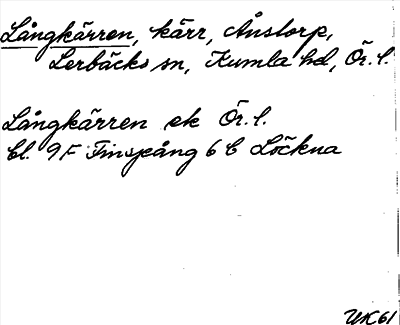 Långkärren, kärr, Åństorp,
Lerbäcks sn, Kumla hd, Ör. l.
Långkärren ek Ör. l.
bl. 9F Finspång 6 b Löckna
UK61